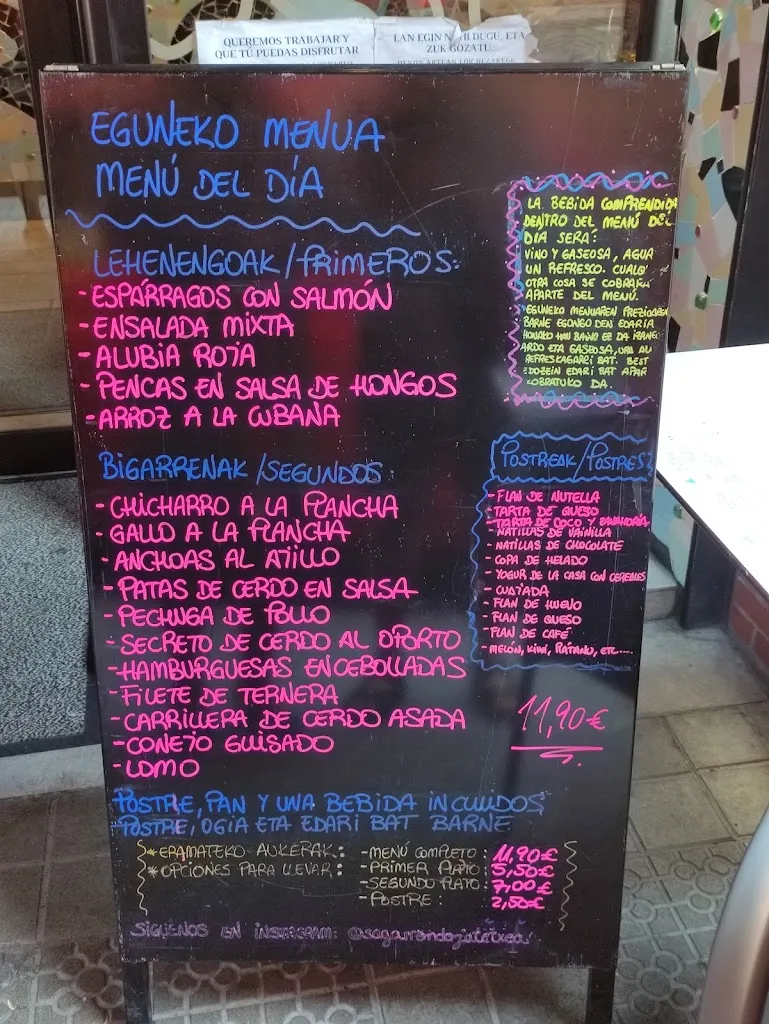 QUEREMOS TRABAJAR Y
QUE TÚ PUEDAS DISFRUTAR
LAN EGIN DUGU, ETA
ZUK GOZATU.
EGUNEKO MENUA
MENÚ DEL DÍA
LEHENENGOAK/PRIMEROS:
- ESPÁRRAGOS CON SALMÓN
- ENSALADA MIXTA
- ALUBIA ROJA
- PENCAS EN SALSA DE HONGOS
- ARROZ A LA CUBANA
BIGARRENAK/SEGUNDOS:
- CHICHARRO A LA PLANCHA
- GALLO A LA PLANCHA
- ANCHOAS AL AJILLO
- PATAS DE CERDO EN SALSA
- PECHUGA DE POLLO
- SECRETO DE CERDO AL OPORTO
- HAMBURGUESAS ENCEBOLLADAS
- FILETE DE TERNERA
- CARRILLERA DE CERDO ASADA
- CONEJO GUISADO
- LOMO
LA BEBIDA COMPRENDIDA
DENTRO DEL MENÚ DEL
DÍA SERÁ:
VINO Y GASEOSA, AGUA
UN REFRESCO. CUALQ
OTRA COSA SE COBRARÁ
APARTE DEL MENÚ.
EGUNEKO MENUAREN PREZIOAREN
BARNE EGONGO DEN EDARIA
HONAKO HAU BAINO EZ DA IZANG
ARDO ETA GASEOSA, URA AU
REFRESKAGARRI BAT. BEST
EDOZEIN EDARI BAT APAR
KOBRATUKO DA.
POSTREAK/POSTRES
- FLAN DE NUTELLA
- TARTA DE QUESO
- TARTA DE COCO Y ZANAHORIA
- NATILLAS DE VAINILLA
- NATILLAS DE CHOCOLATE
- COPA DE HELADO
- YOGUR DE LA CASA CON CEREALES
- CUAJADA
- FLAN DE HUEVO
- FLAN DE QUESO
- FLAN DE CAFÉ
- MELÓN, KIWI, PLÁTANO, ETC....
11,90€
POSTRE, PAN Y UNA BEBIDA INCLUIDOS
POSTRE, OGIA ETA EDARI BAT BARNE
*ERAMATEKO AUKERAK:
*OPCIONES PARA LLEVAR:
- MENÚ COMPLETO: 11,90€
- PRIMER PLATO: 5,50€
- SEGUNDO PLATO: 7,00€
- POSTRE: 2,50€
SÍGUENOS EN INSTAGRAM: @sagarrondojatetxea